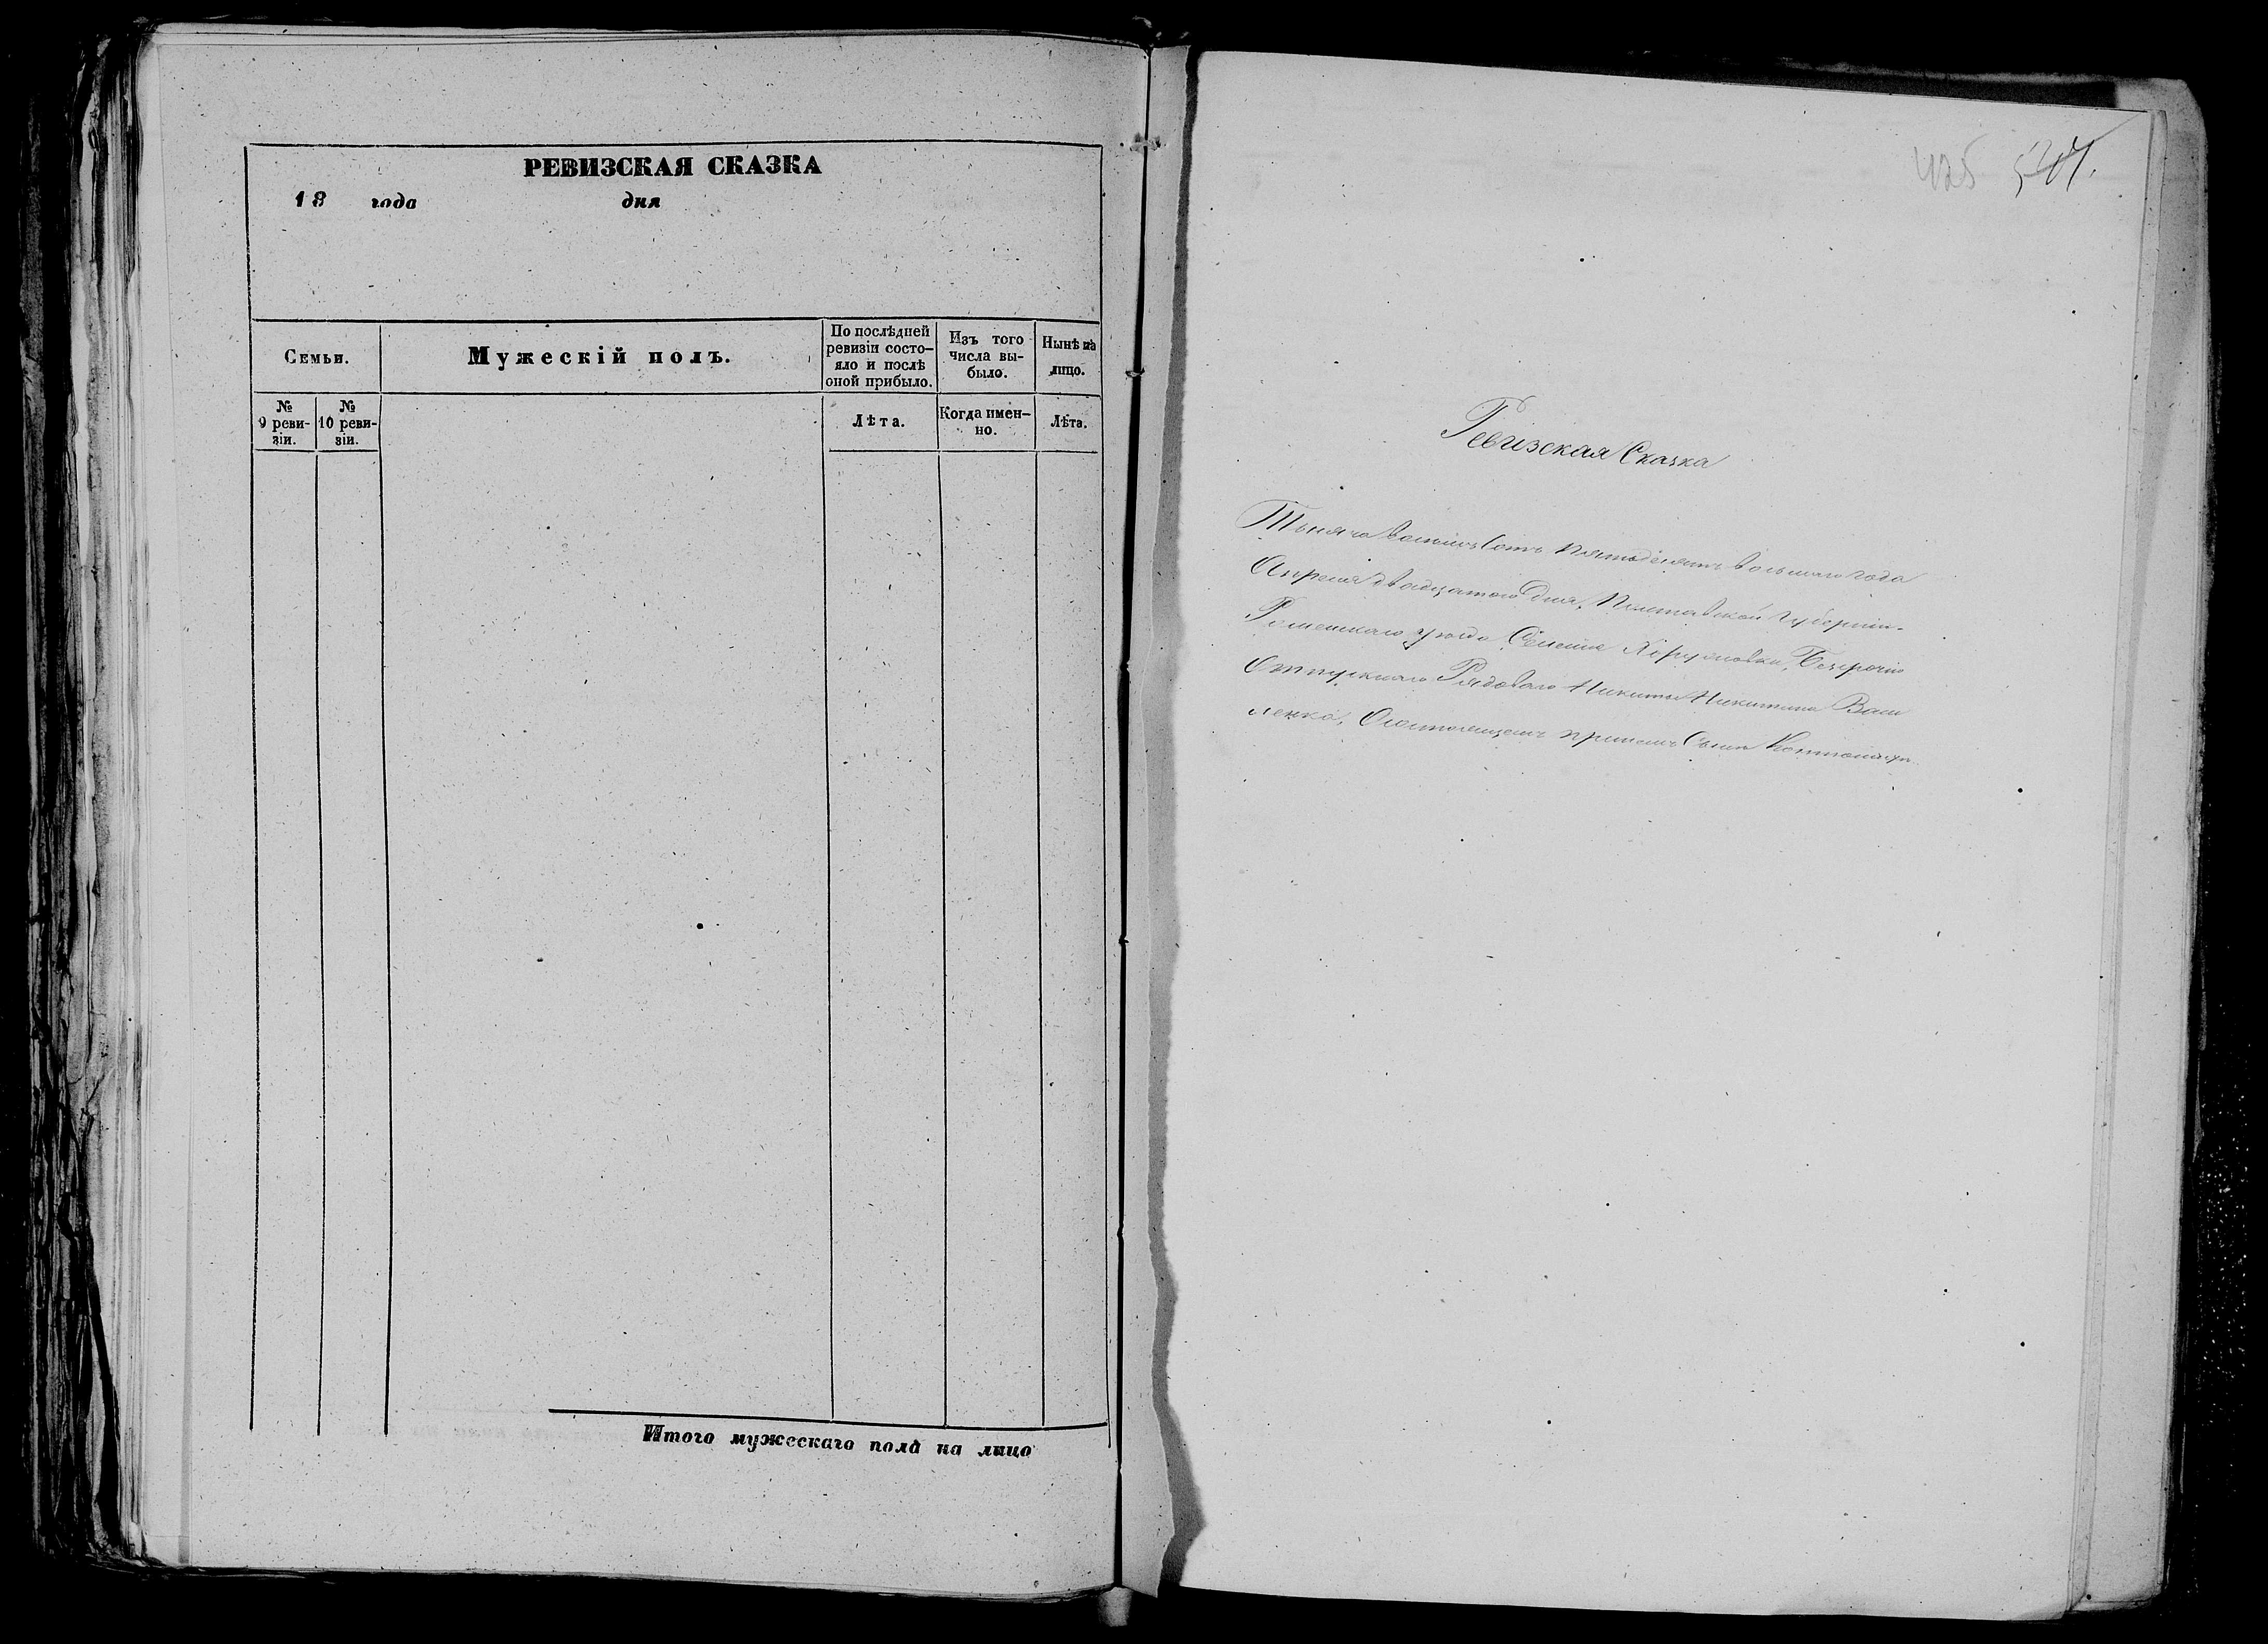 РЕВИЗСКАЯ СКАЗКА
18 года дня
Семьи.
Мужескій полъ.
По послѣдней ревизіи состо-
яло и послѣ
оной прибыло.
Изъ того
числа вы-
было.
Нынѣ на
лицо.
№
9 реви-
зіи.
№
10 реви-
зіи.
Лѣта.
Когда имен-
но.
Лѣта.
Итого мужескаго пола на лицо
425
Ревизская Сказка
Тысяча восемь Сотъ пятьдесятъ восьмаго года
Апреля двадцатого дня, Полтавской губерніи
Роменскаго уезда Хоружовки, Безсрочно
Отпускнаго Рядоваго Никиты Никитина Васи
ленка, Осостоящемъ принемъ Сыне